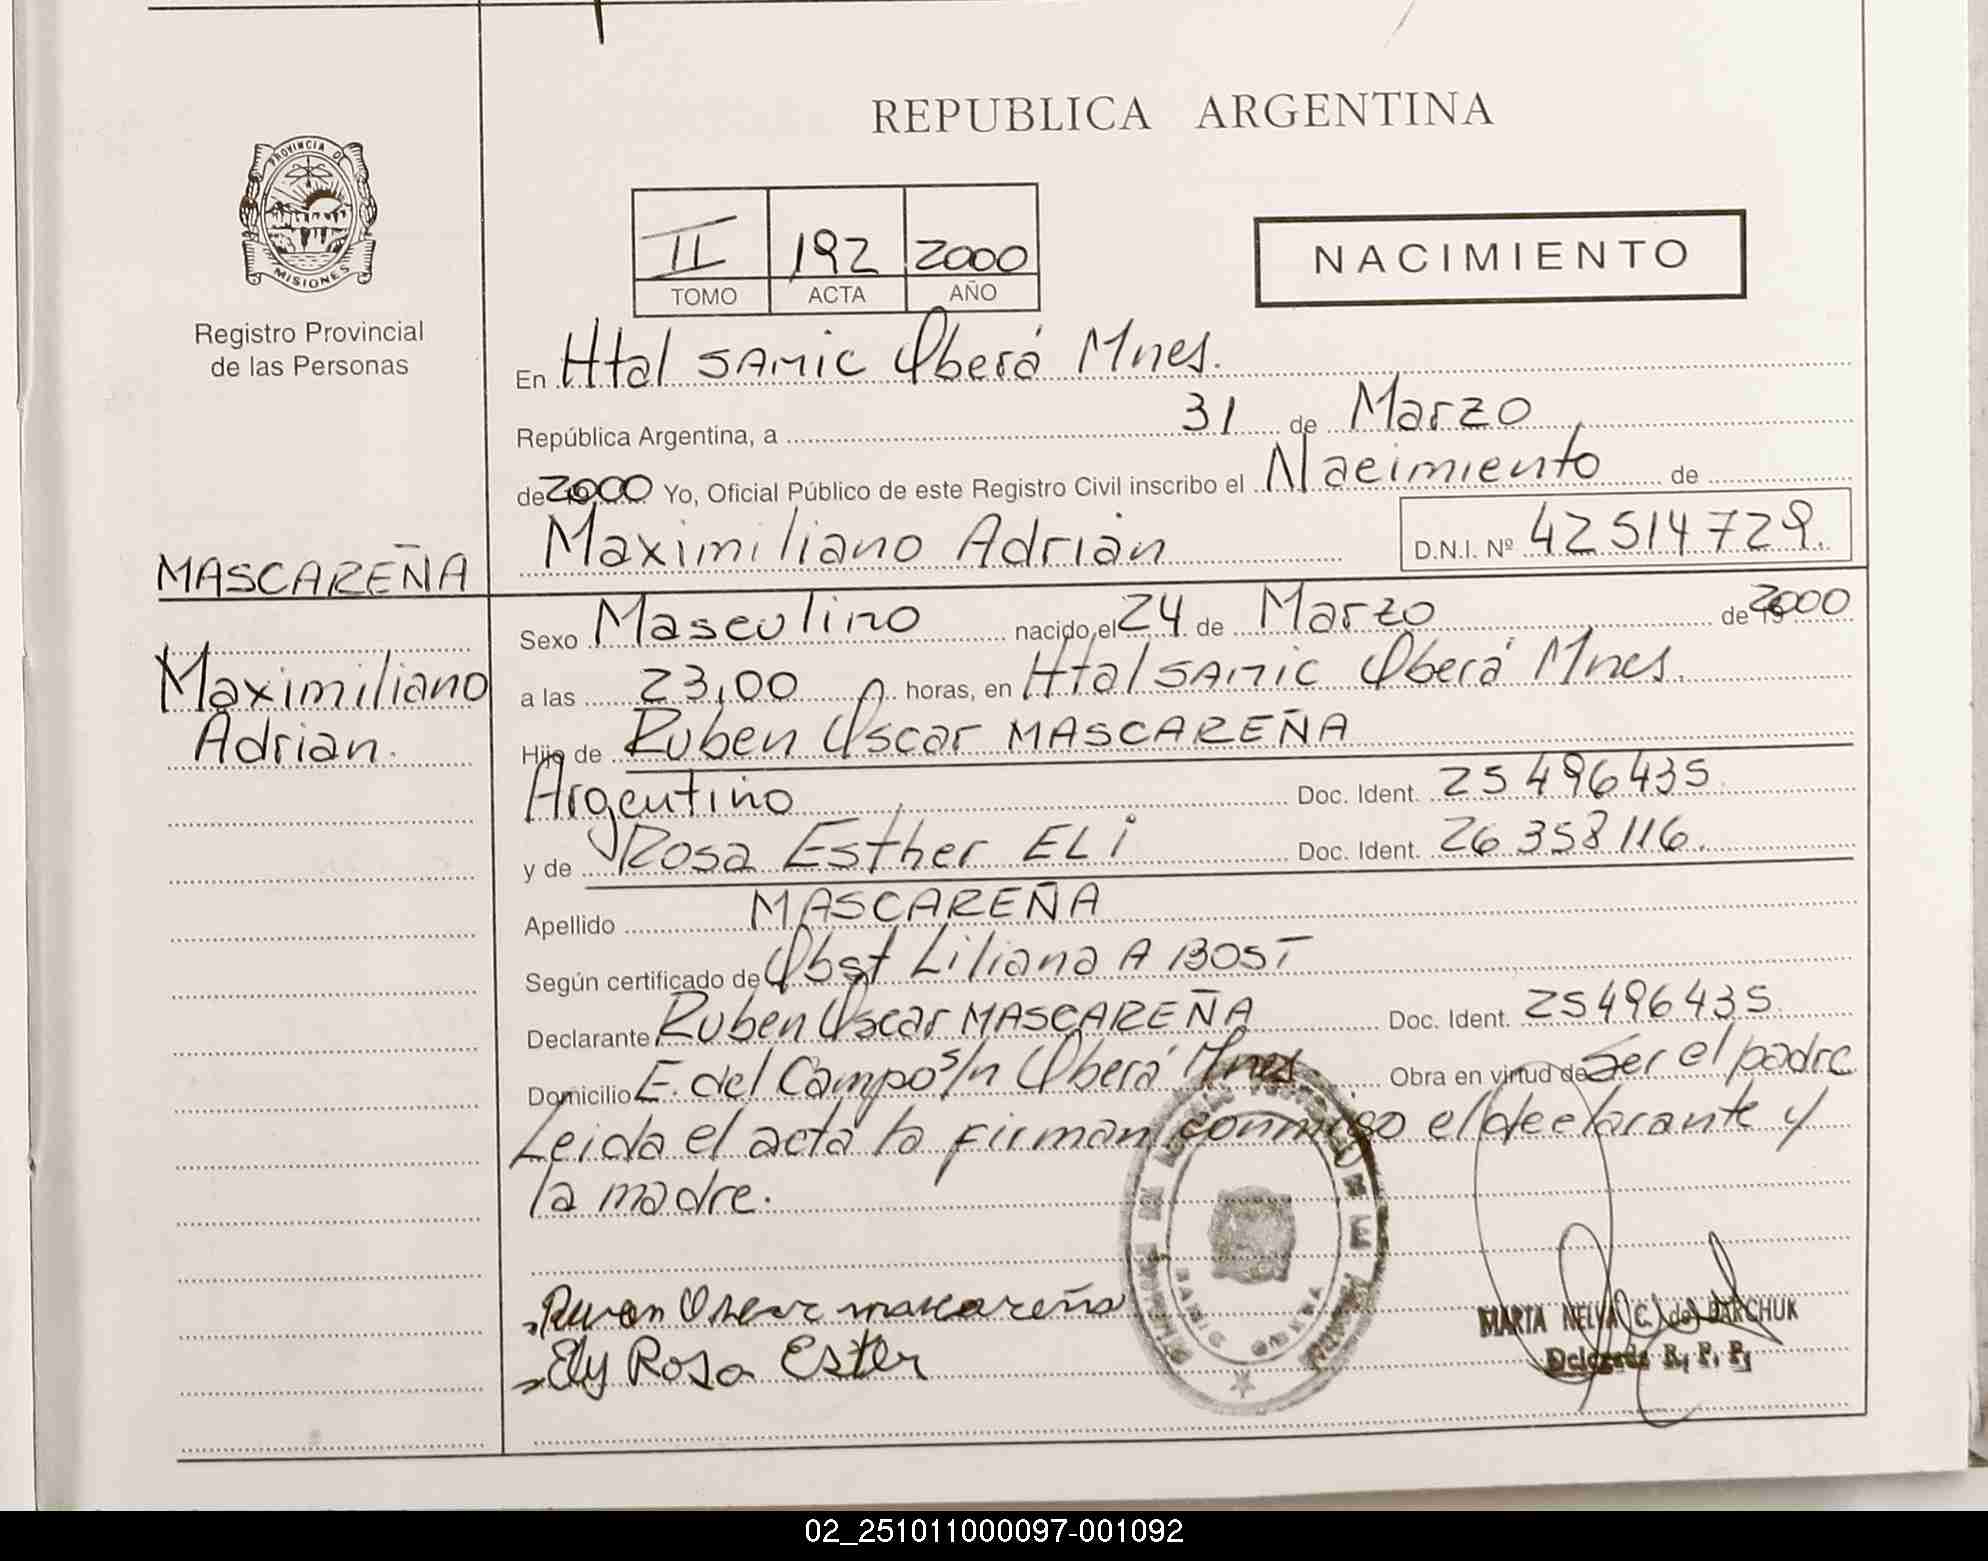 REPUBLICA ARGENTINA
PROVINCIA DE
MISIONES
Registro Provincial
de las Personas
II 192 2000
TOMO ACTA AÑO
NACIMIENTO
En Htal SAMIC Oberá Mnes.
República Argentina, a 31 de Marzo
de 2000 Yo, Oficial Público de este Registro Civil inscribo el Nacimiento de
Maximiliano Adrian D.N.I. Nº 42514729.
MASCAREÑA
Maximiliano
Adrian.
Sexo Masculino nacido el 24 de Marzo de 2000
a las 23,00 horas, en Htal SAMIC Oberá Mnes.
Hijo de Ruben Oscar MASCAREÑA
Argentino Doc. Ident. 25496435.
y de Rosa Esther ELi Doc. Ident. 26358116.
Apellido MASCAREÑA
Según certificado de Obst Liliana A BOST
Declarante Ruben Oscar MASCAREÑA Doc. Ident. 25496435.
Domicilio E. del Campo s/n Oberá Mnes Obra en virtud de Ser el padre
Leida el acta la firman conmigo el declarante y
la madre.
Ruven Oscar mascareña
Ely Rosa Ester
MARTA NELVA (C.) de
Delegada R. P. P.
02_251011000097-001092